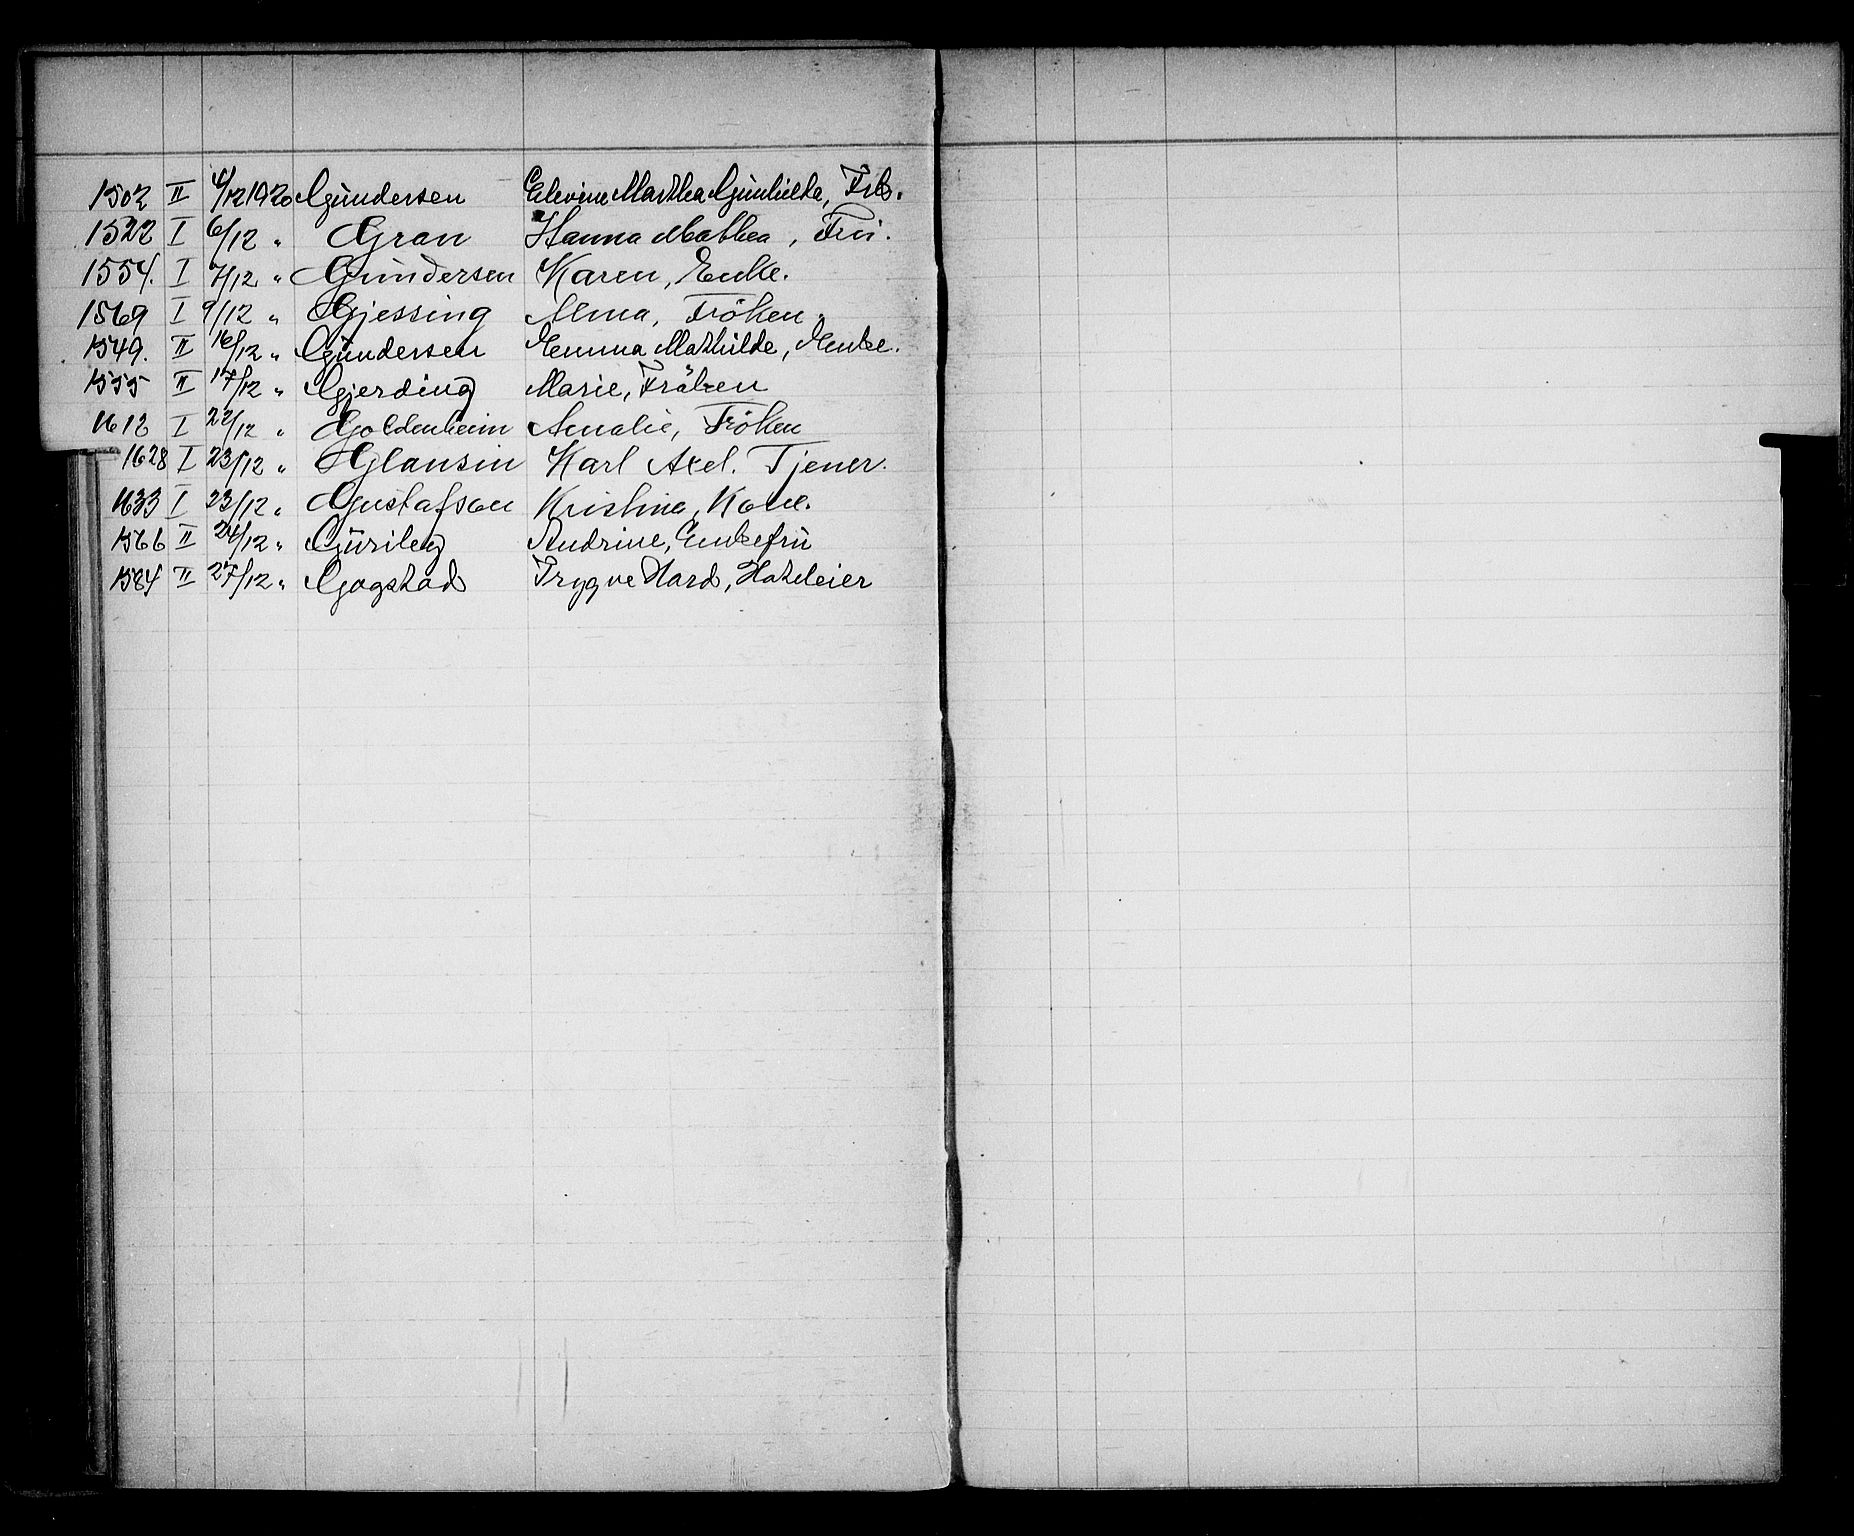 1502 II 4/12 1920 Gundersen Elevine Marthea Gunhilda, Frk.
1522 I 6/12 " Gran Hanna Mathea, Frú.
1554. I 7/12 " Gundersen Karen, Enke.
1569 I 9/12 " Gjessing Alma, Fröken.
1549. II 16/12 " Gundersen Emma Mathilde, Enke.
1555 II 17/12 " Gjerding Marie, Fröken
1612 I 22/12 " Goldenheim Amalie, Fröken
1628 I 23/12 " Glansin Karl Axel. Tjener.
1633 I 23/12 " Gustafson Kristina, Kone.
1566 II 24/12 " Andrine, Enkefrú
1584 II 27/12 " Gogstad Trygve Hard, Hoteleier